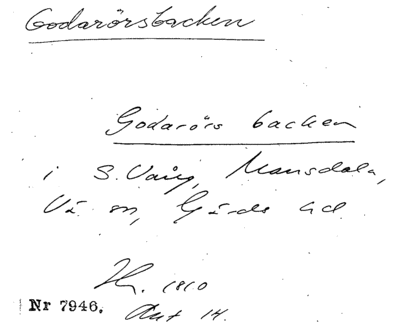 Godarörsbacken
Godarörs backen
i S. Vång, Mansdala,
Vä sn, Gärds hd.
1810
Nr 7946. Akt 14.